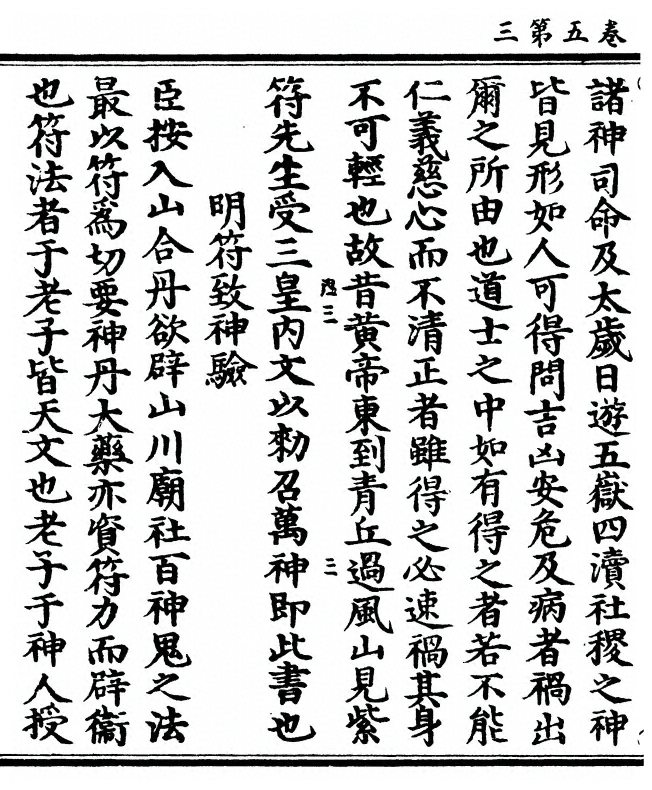 三第五卷
諸神司命及太歲日遊五嶽四瀆社稷之神
皆見形如人可得問吉凶安危及病者禍出
爾之所由也道士之中如有得之者若不能
仁義慈心而不清正者雖得之必速禍其身
不可輕也故昔黃帝東到青丘過風山見紫
三
符先生受三皇內文以勑召萬神即此書也
明符致神驗
臣按入山合丹欲辟山川廟社百神鬼之法
最以符爲切要神丹大藥亦資符力而辟衞
也符法者于老子皆天文也老子于神人授